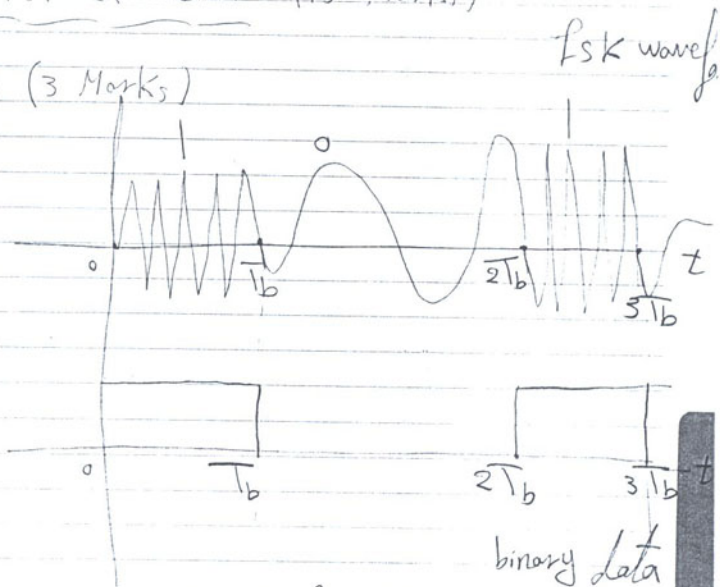 fsk wavef
(3 Marks)
1 0 1
0 Tb 2Tb 3Tb t
0 Tb 2Tb 3Tb t
binary data